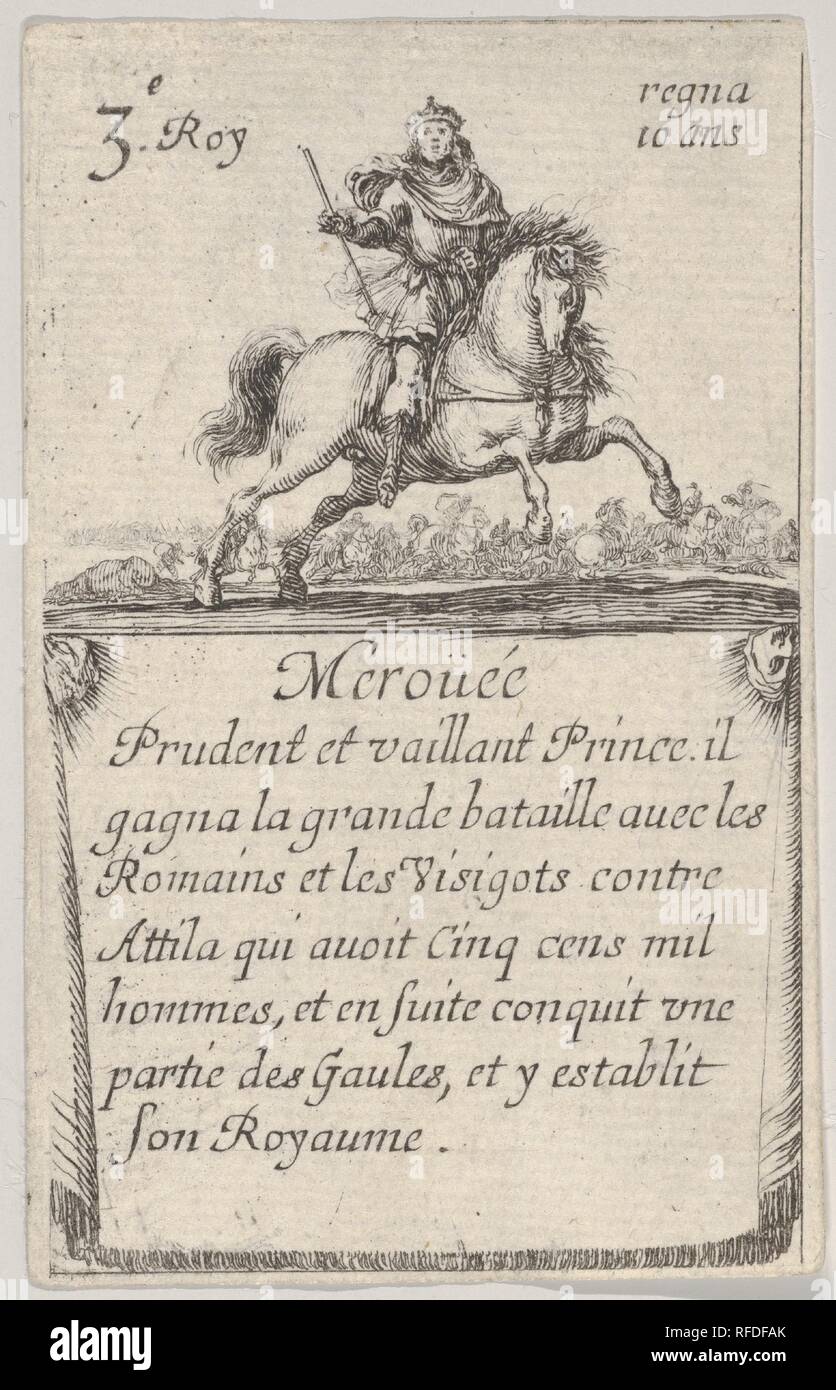 3.e Roy
regna
10 ans
Meroüéé
Prudent et vaillant Prince. il
gagna la grande bataille auec les
Romains et les Visigots contre
Attila qui auoit Cinq cens mil
hommes, et en ſuite conquit vne
partie des Gaules, et y establit
ſon Royaume .
alamy
Image ID: RFDFAK
www.alamy.com